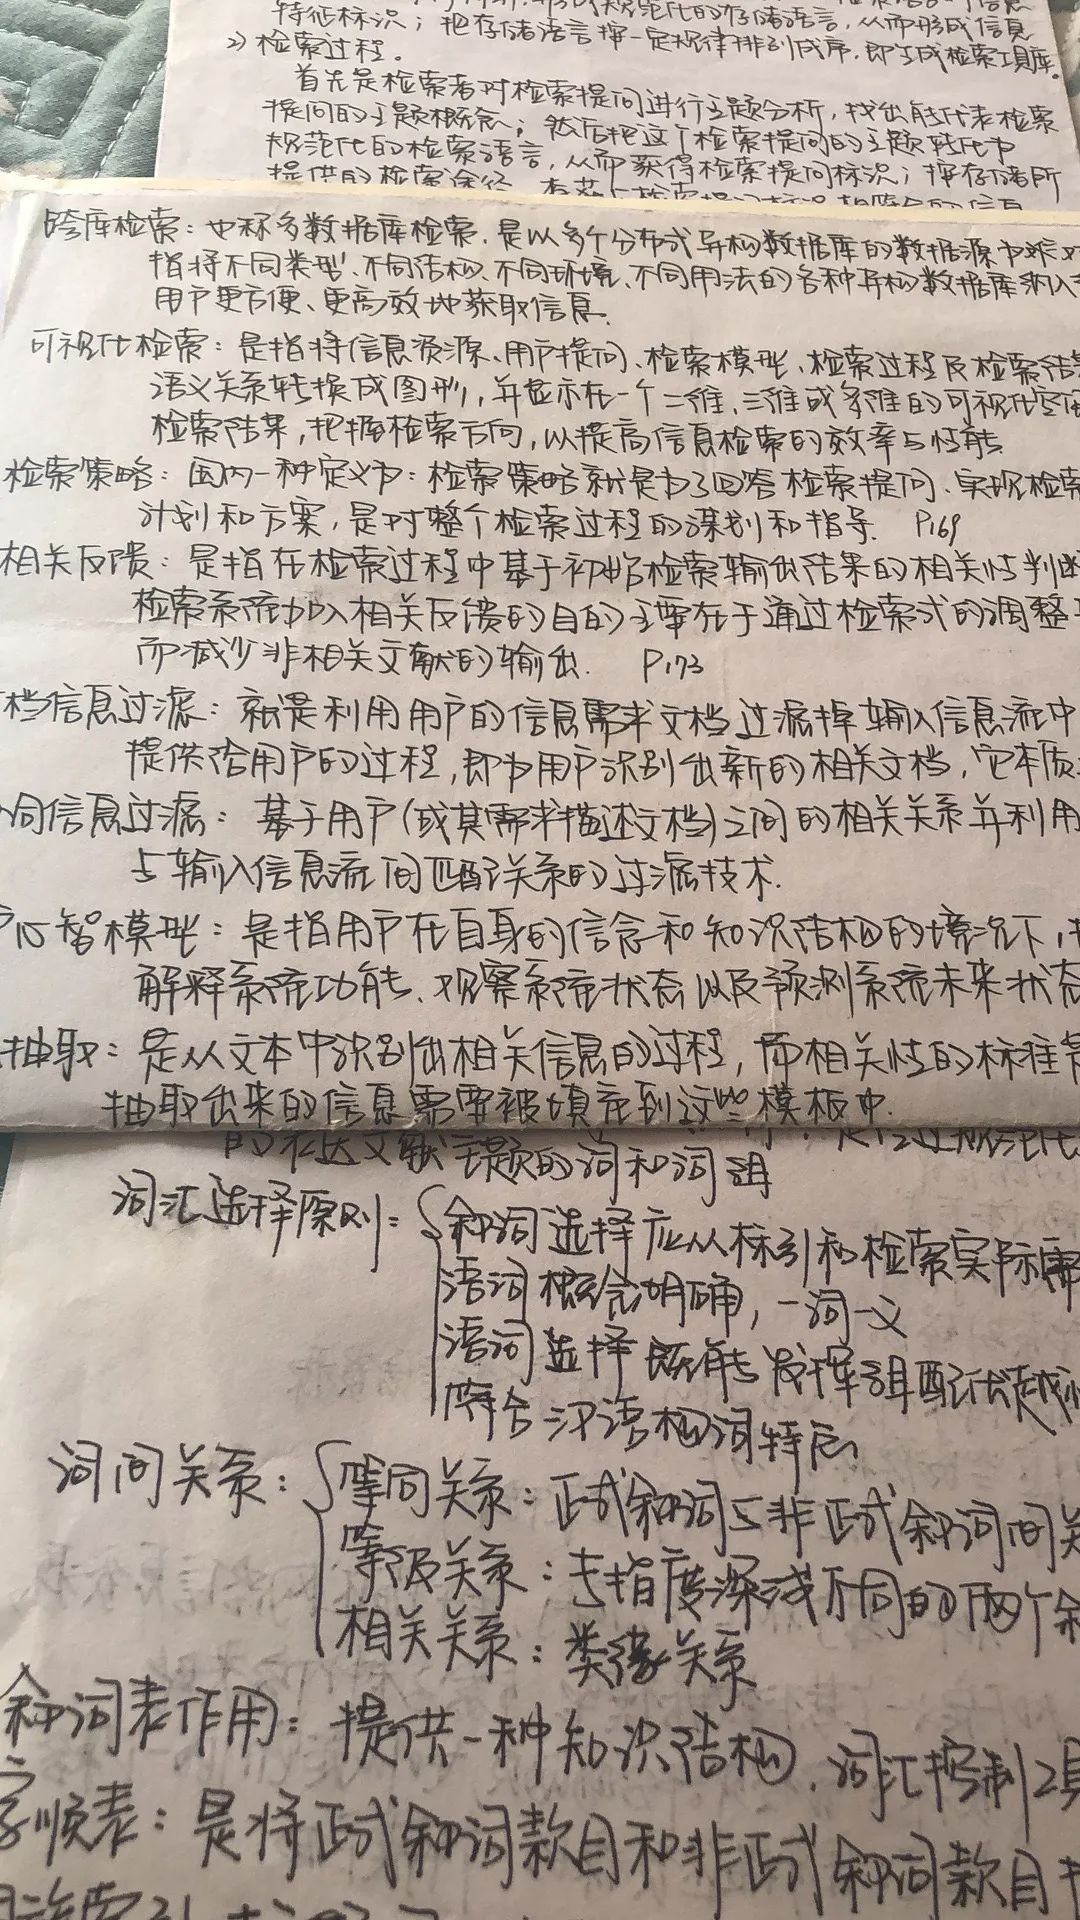 特征标识；把存储语言按一定规律排列成序，即生成检索工具库。
2) 检索过程。
首先是检索者对检索提问进行主题分析，找出能代表检索
提问的主题概念；然后把这个检索提问的主题转化为
规范化的检索语言，从而获得检索提问标识；按存储所
提供的检索途径，
跨库检索：也称多数据库检索，是以多个分布式异构数据库的数据源为
指将不同类型、不同结构、不同环境、不同用法的各种异构数据库纳入
用户更方便、更高效地获取信息。
可视化检索：是指将信息资源、用户提问、检索模型、检索过程及检索结果
语义关系转换成图形，并显示在一个二维、三维或多维的可视化空间
检索结果，把握检索方向，以提高信息检索的效率与性能
检索策略：国内一种定义为：检索策略就是为了回答检索提问、实现检索
计划和方案，是对整个检索过程的谋划和指导. P169
相关反馈：是指在检索过程中基于初始检索输出结果的相关性判断
检索系统加入相关反馈的目的主要在于通过检索式的调整
而减少非相关文献的输出. P173
档信息过滤：就是利用用户的信息需求文档过滤掉输入信息流中
提供给用户的过程，即为用户识别出新的相关文档，它本质
同信息过滤：基于用户(或其需求描述文档)之间的相关关系并利用
与输入信息流间匹配关系的过滤技术.
户心智模型：是指用户在自身的信念和知识结构的境况下，
解释系统功能、观察系统状态以及预测系统未来状态
抽取：是从文本中识别出相关信息的过程，而相关性的标准
抽取出来的信息需要被填充到这些模板中.
的表达文献主题的词和词组
词汇选择原则：叙词选择应从标引和检索实际需
语词概念明确，一词一义
语词选择既能发挥组配优越
符合汉语构词特点
词间关系：等同关系：正式叙词与非正式叙词间关
等级关系：专指度深浅不同的两个叙
相关关系：类缘关系
叙词表作用：提供一种知识结构，词汇控制工具
字顺表：是将正式叙词款目和非正式叙词款目